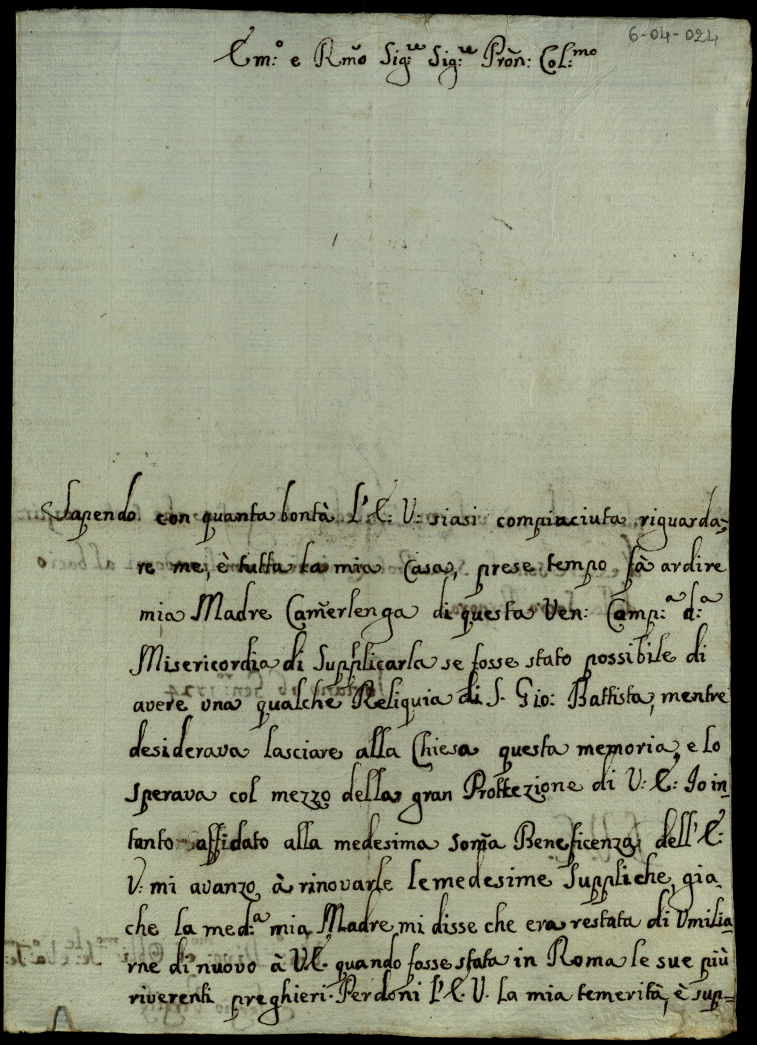 6-04-024
Em:º e Rm̃o Sig:re Sig:re Pron̄: Col:mo
Sapendo con quanta bontà l'E: V: siasi compiaciuta riguarda=
re me, è tutta la mia Casa, prese tempo fà ardire
mia Madre Cam̃erlenga di questa Ven: Camp:a d:a
Misericordia di Supplicarla se fosse stato possibile di
avere una qualche Reliquia di S. Gio: Battista, mentre
desiderava lasciare alla Chiesa questa memoria, e lo
sperava col mezzo della gran Prottezione di V: E: Io in
tanto affidato alla medesima som̃a Beneficenza dell'E:
V: mi avanzo à rinovarle le medesime Suppliche, gia
che la med:a mia Madre mi disse che era restata di Umilia
rne di nuovo à V.E. quando fosse stata in Roma le sue più
riverenti preghieri. Perdoni l'E. V. la mia temerità, è sup=